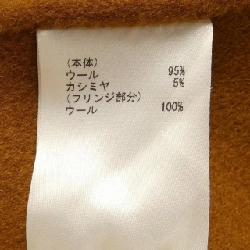 (本体)
ウール 95%
カシミヤ 5%
(フリンジ部分)
ウール 100%